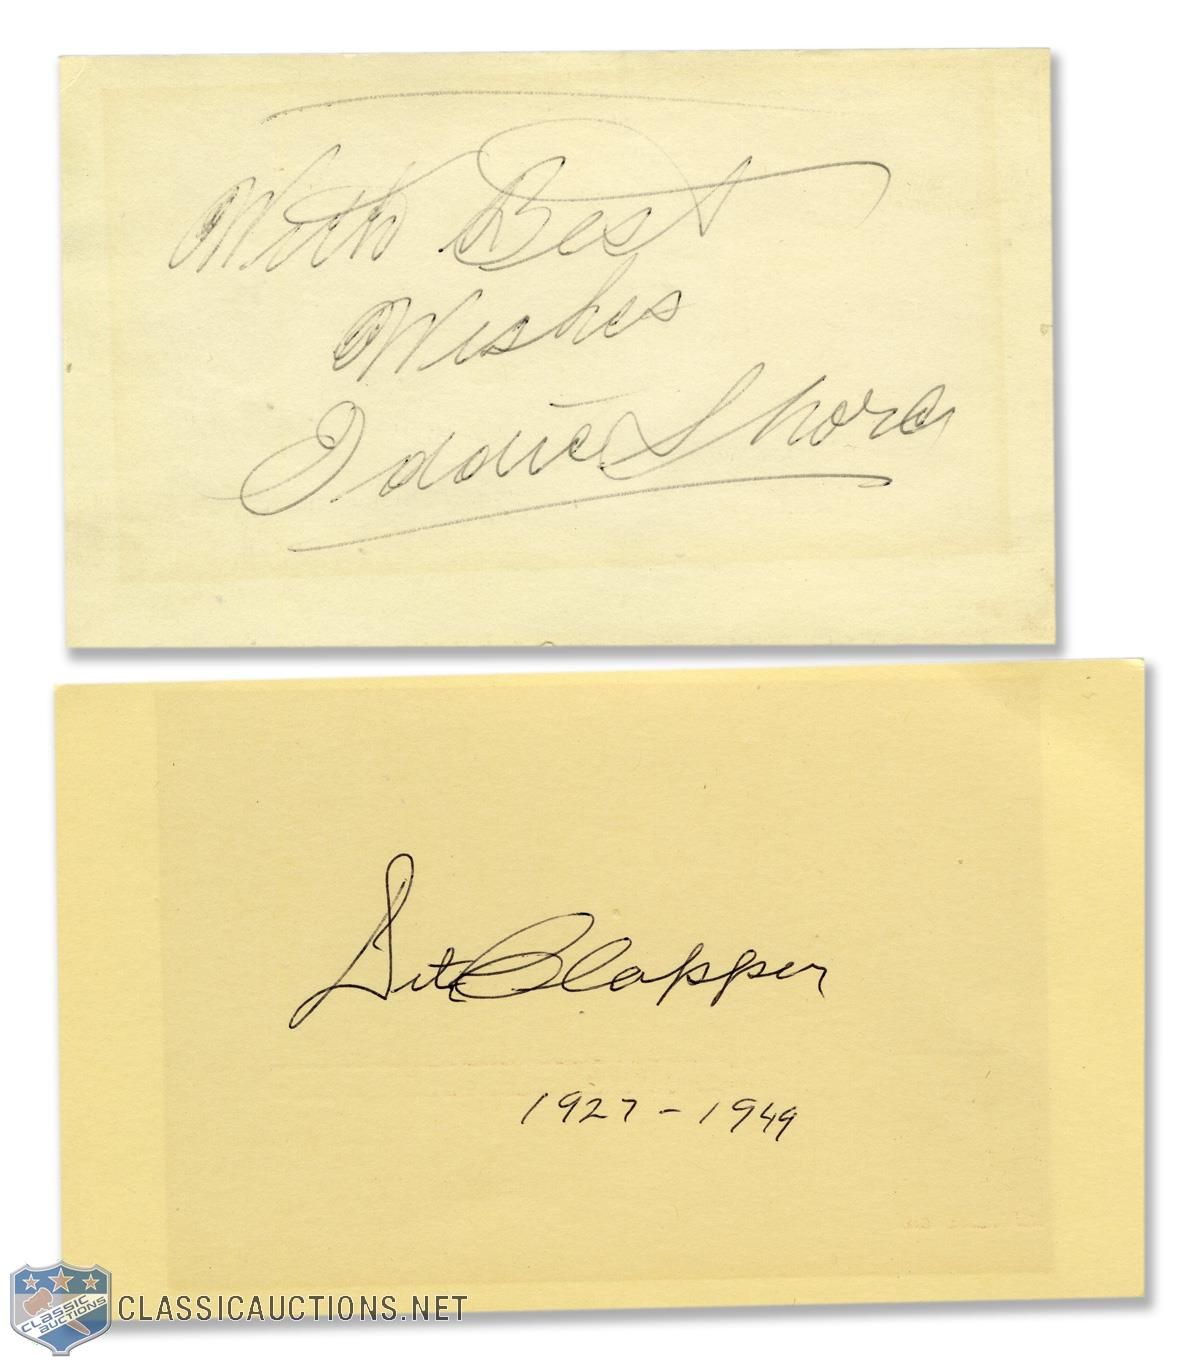 With Best
Wishes
Eddie Shore
Dit Clapper
1927 - 1949
CLASSIC
AUCTIONS
CLASSICAUCTIONS.NET